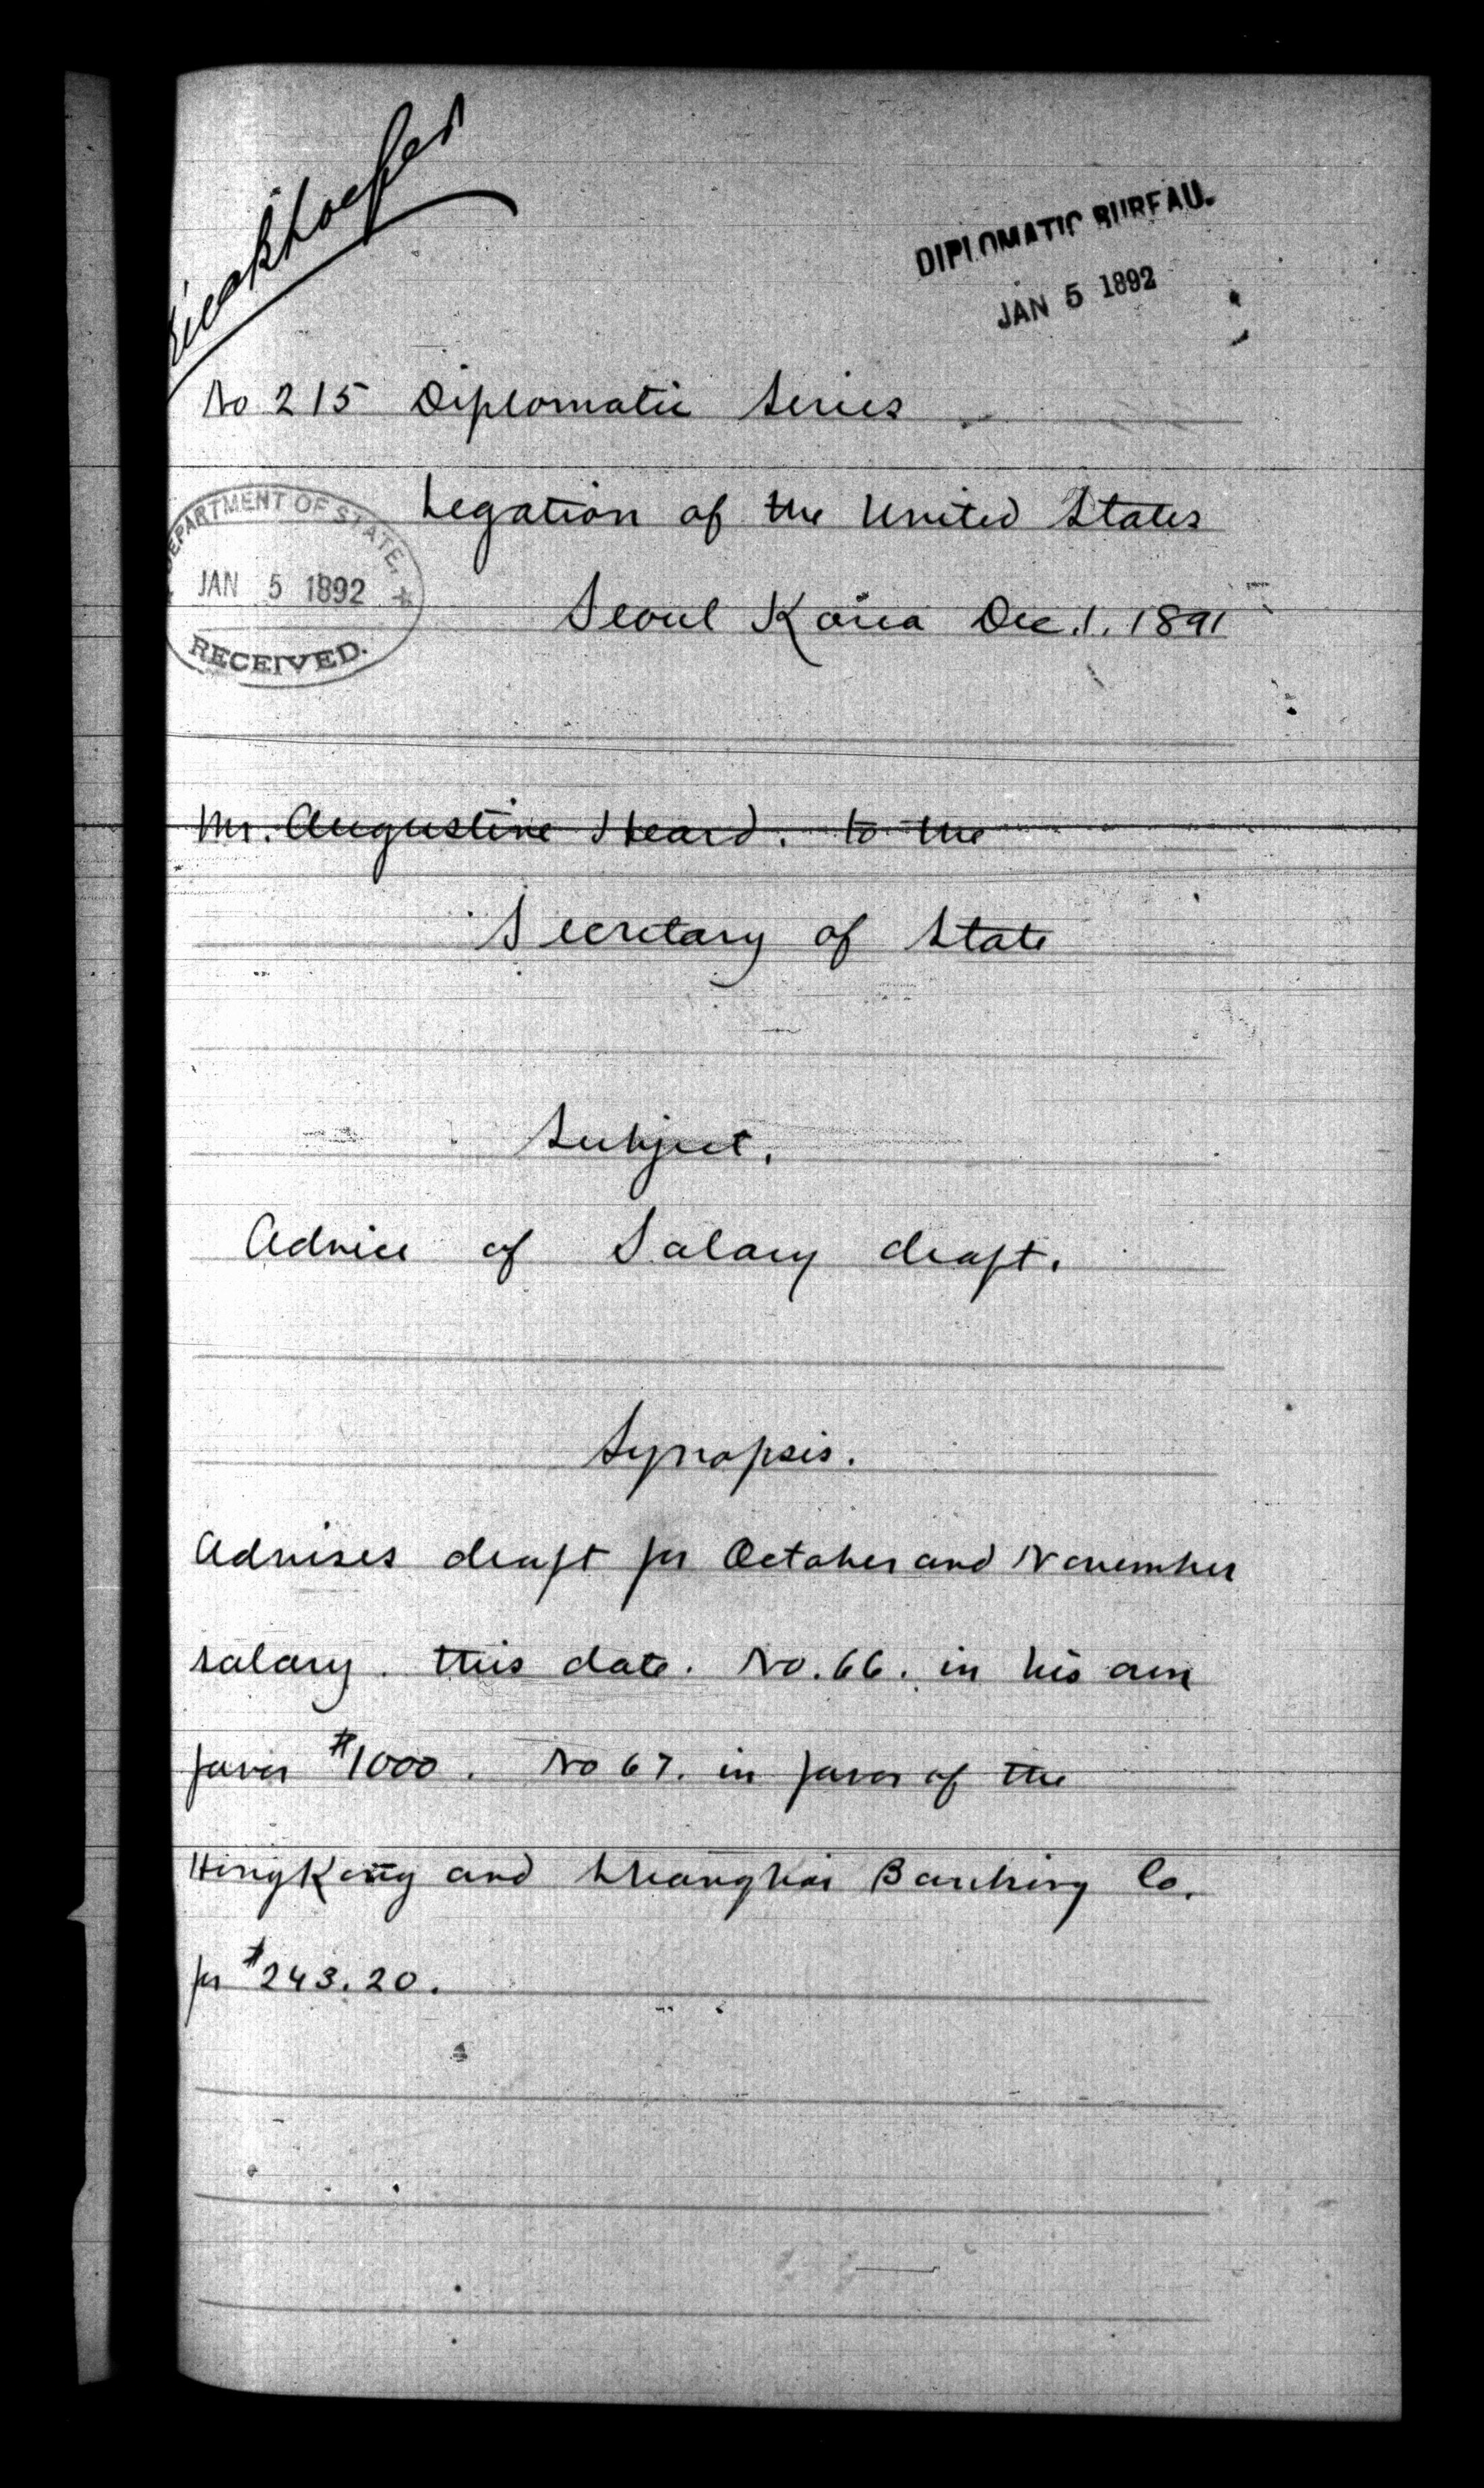 DIPLOMATIC BUREAU.
JAN 5 1892
No 215 Diplomatic Series
Legation of the United States
DEPARTMENT OF STATE,
JAN 5 1892
RECEIVED.
Seoul Korea Dec. 1. 1891
Mr. Augustine Heard. to the
Secretary of State
Subject.
Advice of Salary draft.
Synopsis.
Advises draft for October and November
salary. this date. No. 66. in his own
favor $1000. No 67. in favor of the
HongKong and Shanghai Banking Co.
for $243.20.